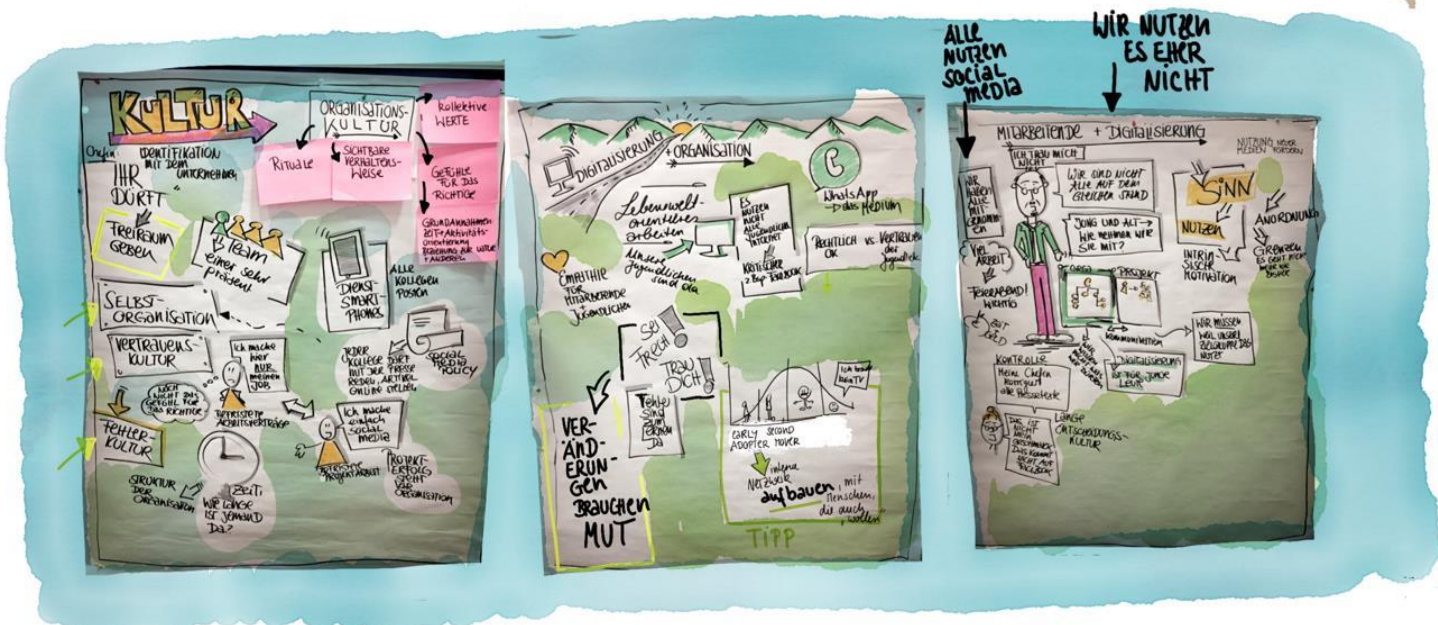 KULTUR
ORGANISATIONS-
KULTUR
Kollektive
WERTE
Rituale
SICHTBARE
VERHALTENS-
WEISE
GEFÜHLE
FÜR DAS
RICHTIGE
GRUNDANNAHMEN
ZEIT + Aktivitäts-
orientierung
Beziehung zur Natur
+ ANDEREN
Chefin:
IDENTIFIKATION
MIT DEM
UNTERNEHMEN
IHR
DÜRFT
FREIRAUM
GEBEN
TEAM
einer sehr
präsent
DIENST-
SMART-
PHONES
ALLE
KOLLEGEN
POSTEN
SELBST-
ORGANISATION
VERTRAUENS-
KULTUR
Ich mache
hier
NUR
meinen
JOB
JEDER
KOLLEGE DARF
MIT DER PRESSE
REDEN, ARTIKEL
ONLINE STELLEN
SOCIAL
MEDIA
POLICY
NOCH
NICHT DAS
GEFÜHL FÜR
DAS RICHTIGE
BEFRISTETE
ARBEITSVERTRÄGE
Ich mache
einfach
social
media
FEHLER-
KULTUR
BEFRISTETE
PROJEKTARBEIT
PROJEKT-
ERFOLG
STEHT
VOR
ORGANISATION
STRUKTUR
DER
ORGANISATION
ZEIT:
WIE LANGE
IST JEMAND
DA?
DIGITALISIERUNG
+ ORGANISATION
WhatsApp
DAS MEDIUM
Lebenswelt-
orientiertes
arbeiten
Unsere
Jugendlichen
sind da
ES
NUTZEN
NICHT
ALLE
JUGENDLICHEN
INTERNET
KRITISCHER
z.Bsp. FACEBOOK
RECHTLICH
OK
vs.
VERTRAUEN
der
Jugendlich.
EMPATHIE
FÜR
MITARBEITENDE
+
JUGENDLICHEN
SEI
FRECH!
TRAU
DICH!
Fehler
sind
zum
lernen
da
VER-
ÄND
ERUN-
GEN
BRAUCHEN
MUT
Ich brauch
kein TV
EARLY SECOND
ADOPTER MOVER
interne
Netzwerke
aufbauen, mit
Menschen,
die auch
"wollen"
TIPP
ALLE
NUTZEN
SOCIAL
MEDIA
WIR NUTZEN
ES EHER
NICHT
MITARBEITENDE + DIGITALISIERUNG
NUTZUNG NEUER
MEDIEN FÖRDERN
ICH TRAU MICH
NICHT
WIR
HABEN
ALLE
MIT-
GENOMM
EN
WIR SIND NICHT
ALLE AUF DEM
GLEICHEN STAND
JUNG UND ALT →
WIE NEHMEN WIR
SIE MIT?
SINN
NUTZEN
ANORDNUNG
INTRIN
SISCHE
MOTIVATION
GRENZEN
ES GEHT NICHT
VIEL
ARBEIT
FEIERABEND!
WICHTIG
ORGA
PROJEKT
KOMMUNIKATION
WIR MÜSSEN
WEIL UNSERE
ZIELGRUPPE DAS
NUTZT
DIGITALISIERUNG
IST FÜR JUNGE
LEUTE
KONTROLLE
Meine Chefin
korrigiert
alle Pressetexte
DAS IST
NICHT
MEIN
GESCHMACK
DAS KOMMT
NICHT AUF
FACEBOOK
LANGE
ENTSCHEIDUNGS-
KULTUR